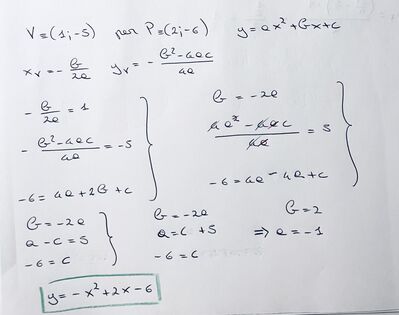 V=(1;-5) per P=(2;-6) y=ax²+bx+c
xᵥ=-b/2a yᵥ=-b²-4ac/4a
-b/2a=1
-b²-4ac/4a=-5
-6=4a+2b+c
b=-2a
4a²-4ac/4a=5
-6=4a-4a+c
b=-2a
a-c=5
-6=c
b=-2a
a=c+5
-6=c
b=2
⇒ a=-1
y=-x²+2x-6